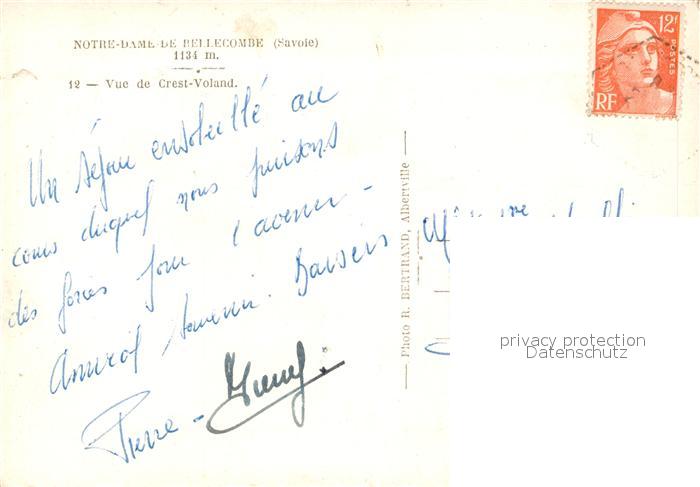 NOTRE-DAME DE BELLECOMBE (Savoie)
1134 m.
12 — Vue de Crest-Voland.
Un séjour ensoleillé au
cours duquel nous puisons
des forces pour l'avenir -
Amical souvenir. Baisers
Pierre -
Photo R. BERTRAND, Albertville
12F
POSTES
RF
privacy protection
Datenschutz